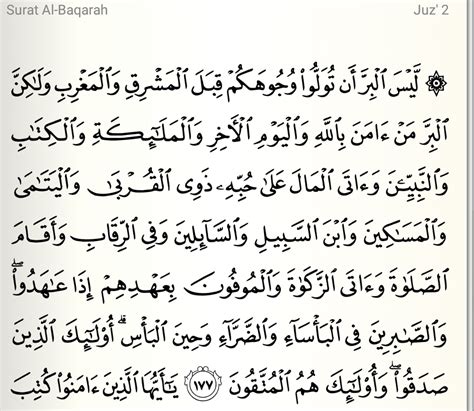 Surat Al-Baqarah Juz' 2
۞ لَّيۡسَ ٱلۡبِرَّ أَن تُوَلُّواْ وُجُوهَكُمۡ قِبَلَ ٱلۡمَشۡرِقِ وَٱلۡمَغۡرِبِ وَلَٰكِنَّ
ٱلۡبِرَّ مَنۡ ءَامَنَ بِٱللَّهِ وَٱلۡيَوۡمِ ٱلۡأٓخِرِ وَٱلۡمَلَٰٓئِكَةِ وَٱلۡكِتَٰبِ
وَٱلنَّبِيِّـۧنَ وَءَاتَى ٱلۡمَالَ عَلَىٰ حُبِّهِۦ ذَوِي ٱلۡقُرۡبَىٰ وَٱلۡيَتَٰمَىٰ
وَٱلۡمَسَٰكِينَ وَٱبۡنَ ٱلسَّبِيلِ وَٱلسَّآئِلِينَ وَفِي ٱلرِّقَابِ وَأَقَامَ
ٱلصَّلَوٰةَ وَءَاتَى ٱلزَّكَوٰةَ وَٱلۡمُوفُونَ بِعَهۡدِهِمۡ إِذَا عَٰهَدُواْۖ
وَٱلصَّٰبِرِينَ فِي ٱلۡبَأۡسَآءِ وَٱلضَّرَّآءِ وَحِينَ ٱلۡبَأۡسِۗ أُوْلَٰٓئِكَ ٱلَّذِينَ
صَدَقُواْۖ وَأُوْلَٰٓئِكَ هُمُ ٱلۡمُتَّقُونَ ١٧٧ يَٰٓأَيُّهَا ٱلَّذِينَ ءَامَنُواْ كُتِبَ